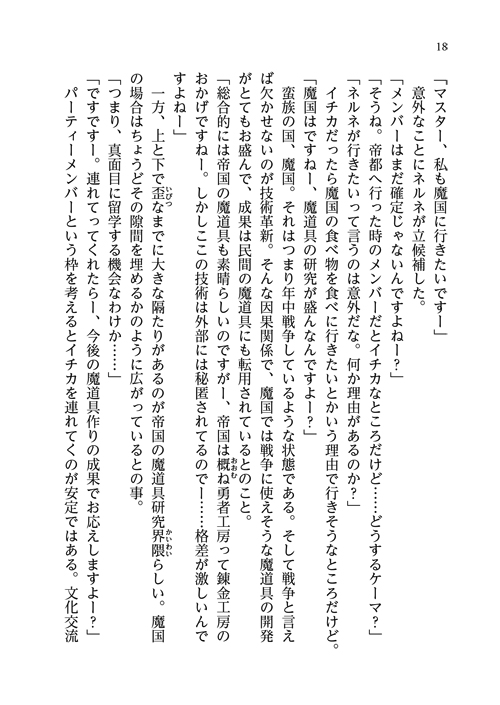 18
「マスター、私も魔国に行きたいですー」
意外なことにネルネが立候補した。
「メンバーはまだ確定じゃないんですよねー？」
「そうね。帝都へ行った時のメンバーだとイチカなところだけど……どうするケーマ？」
「ネルネが行きたいって言うのは意外だな。何か理由があるのか？」
イチカだったら魔国の食べ物を食べに行きたいとかいう理由で行きそうなところだけど。
「魔国はですねー、魔道具の研究が盛んなんですよー？」
蛮族の国、魔国。それはつまり年中戦争しているような状態である。そして戦争と言え
ば欠かせないのが技術革新。そんな因果関係で、魔国では戦争に使えそうな魔道具の開発
がとてもお盛んで、成果は民間の魔道具にも転用されているとのこと。
「総合的には帝国の魔道具も素晴らしいのですがー、帝国は概おおむね勇者工房って錬金工房の
おかげですねー。しかしここの技術は外部には秘匿されてるのでー……格差が激しいんで
すよねー」
一方、上と下で歪いびつなまでに大きな隔たりがあるのが帝国の魔道具研究界隈かいわいらしい。魔国
の場合はちょうどその隙間を埋めるかのように広がっているとの事。
「つまり、真面目に留学する機会なわけか……」
「ですですー。連れてってくれたらー、今後の魔道具作りの成果でお応えしますよー？」
パーティーメンバーという枠を考えるとイチカを連れてくのが安定ではある。文化交流